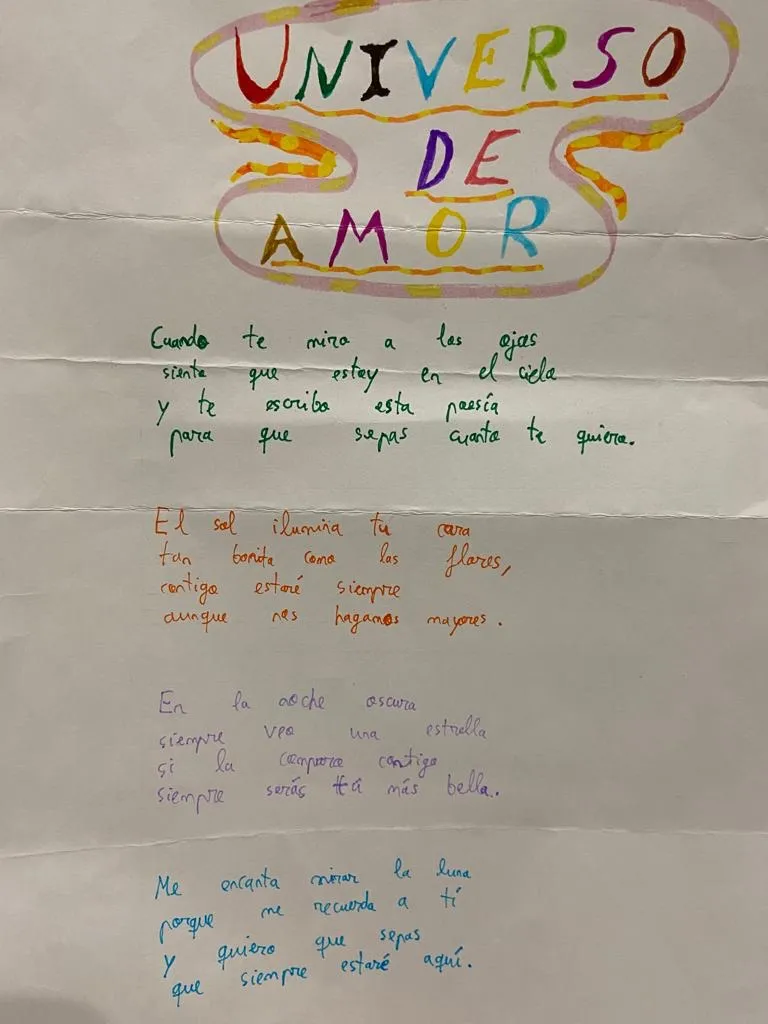 UNIVERSO
DE
AMOR
Cuando te miro a los ojos
siento que estoy en el cielo
y te escribo esta poesía
para que sepas cuanto te quiero.
El sol ilumina tu cara
tan bonita como las flores,
contigo estaré siempre
aunque nos hagamos mayores.
En la noche oscura
siempre veo una estrella
si la comparo contigo
siempre serás tú más bella.
Me encanta mirar la luna
porque me recuerda a tí
y quiero que sepas
que siempre estaré aquí.